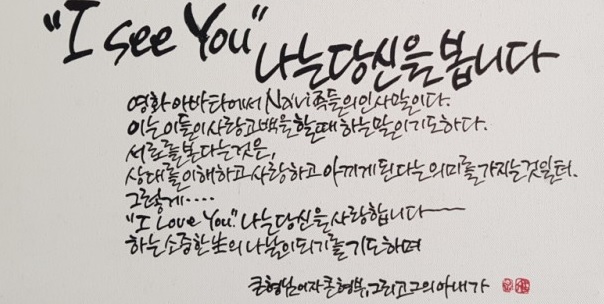 "I see You" 나는 당신을 봅니다
영화 아바타에서 Navi족들의 인사말이다.
이는 이들이 사랑고백을 할 때 하는 말이기도 하다.
서로를 본다는 것은,
상대를 이해하고 사랑하고 아끼게 된다는 의미를 가지는 것일 터.
그렇게....
"I Love You." 나는 당신을 사랑합니다
하는 소중한 生의 나날이 되기를 기도하며
큰형님이자 큰형부, 그리고 그의 아내가